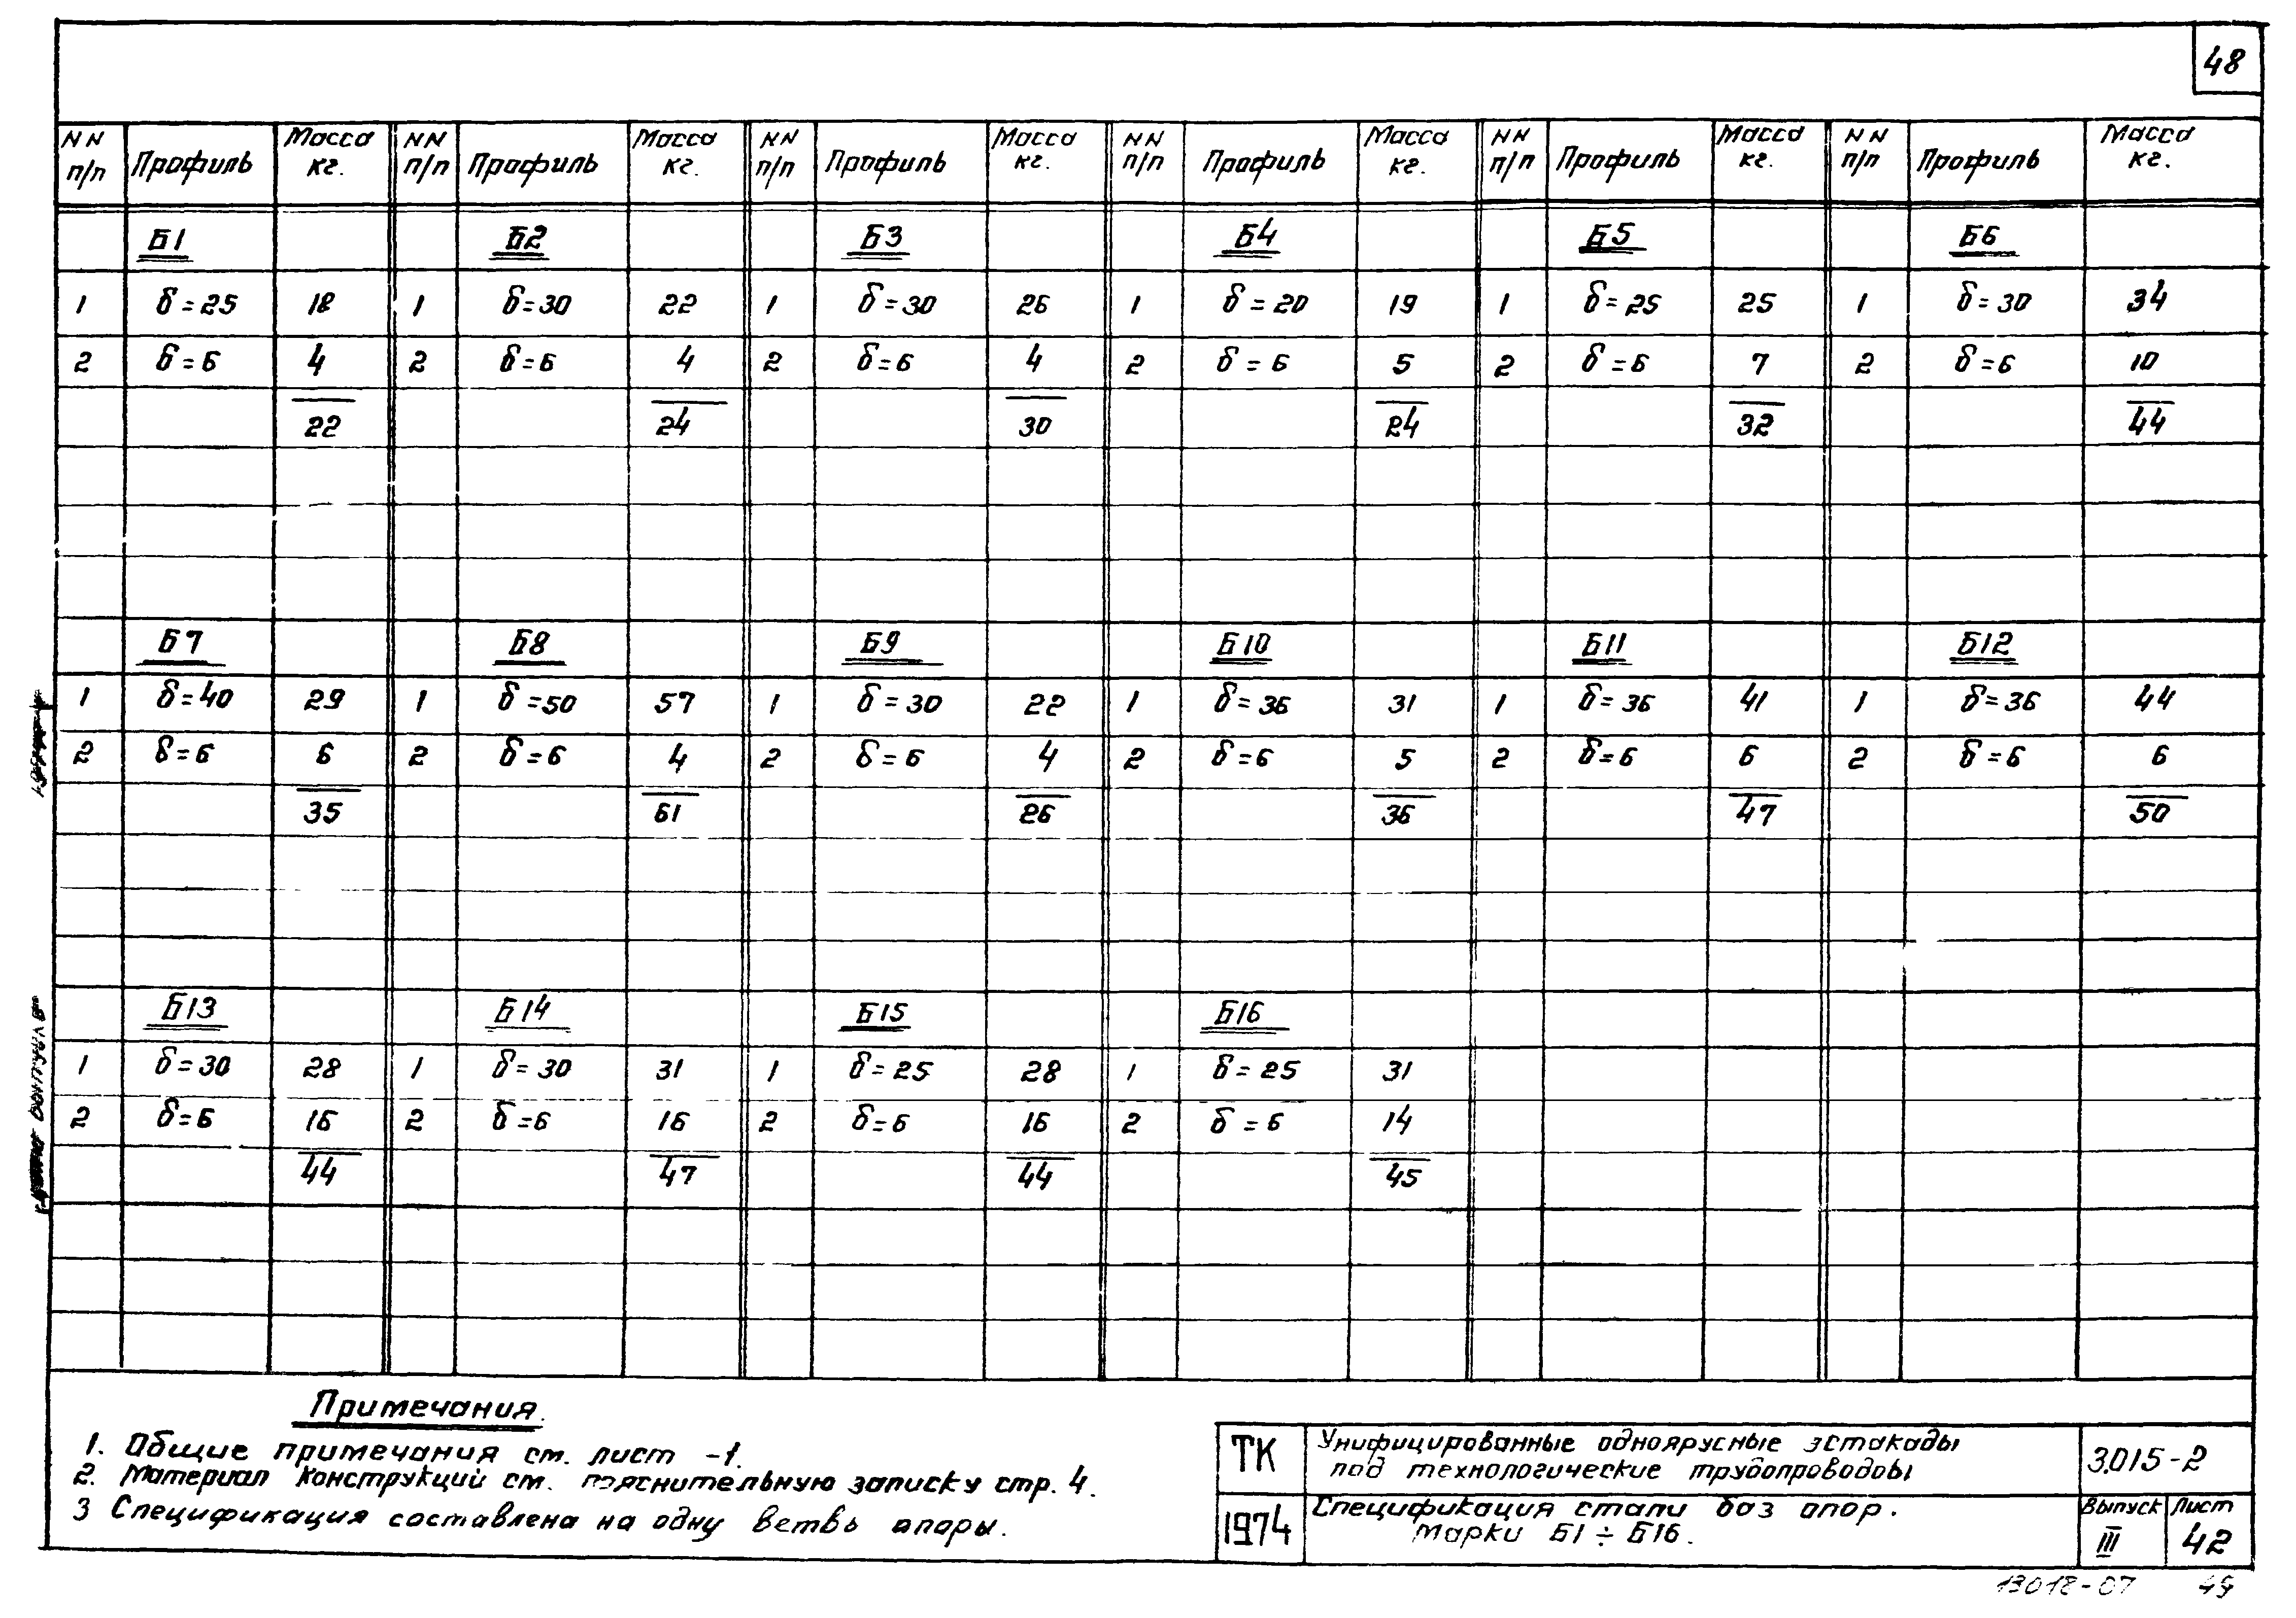 48
NN п/п Профиль Масса кг. NN п/п Профиль Масса кг. NN п/п Профиль Масса кг. NN п/п Профиль Масса кг. NN п/п Профиль Масса кг. NN п/п Профиль Масса кг.
Б1 Б2 Б3 Б4 Б5 Б6
1 δ=25 18 1 δ=30 22 1 δ=30 26 1 δ=20 19 1 δ=25 25 1 δ=30 34
2 δ=6 4 2 δ=6 4 2 δ=6 4 2 δ=6 5 2 δ=6 7 2 δ=6 10
22 24 30 24 32 44
Б7 Б8 Б9 Б10 Б11 Б12
1 δ=40 29 1 δ=50 57 1 δ=30 22 1 δ=36 31 1 δ=36 41 1 δ=36 44
2 δ=6 6 2 δ=6 4 2 δ=6 4 2 δ=6 5 2 δ=6 6 2 δ=6 6
35 61 26 36 47 50
Б13 Б14 Б15 Б16
1 δ=30 28 1 δ=30 31 1 δ=25 28 1 δ=25 31
2 δ=6 16 2 δ=6 16 2 δ=6 16 2 δ=6 14
44 47 44 45
Примечания.
1. Общие примечания см. лист -1.
2. Материал конструкций см. пояснительную записку стр. 4.
3 Спецификация составлена на одну ветвь опоры.
ТК
1974
Унифицированные одноярусные эстакады
под технологические трубопроводы
Спецификация стали баз опор.
Марки Б1÷Б16.
3.015-2
Выпуск Лист
III 42
13018-07 49